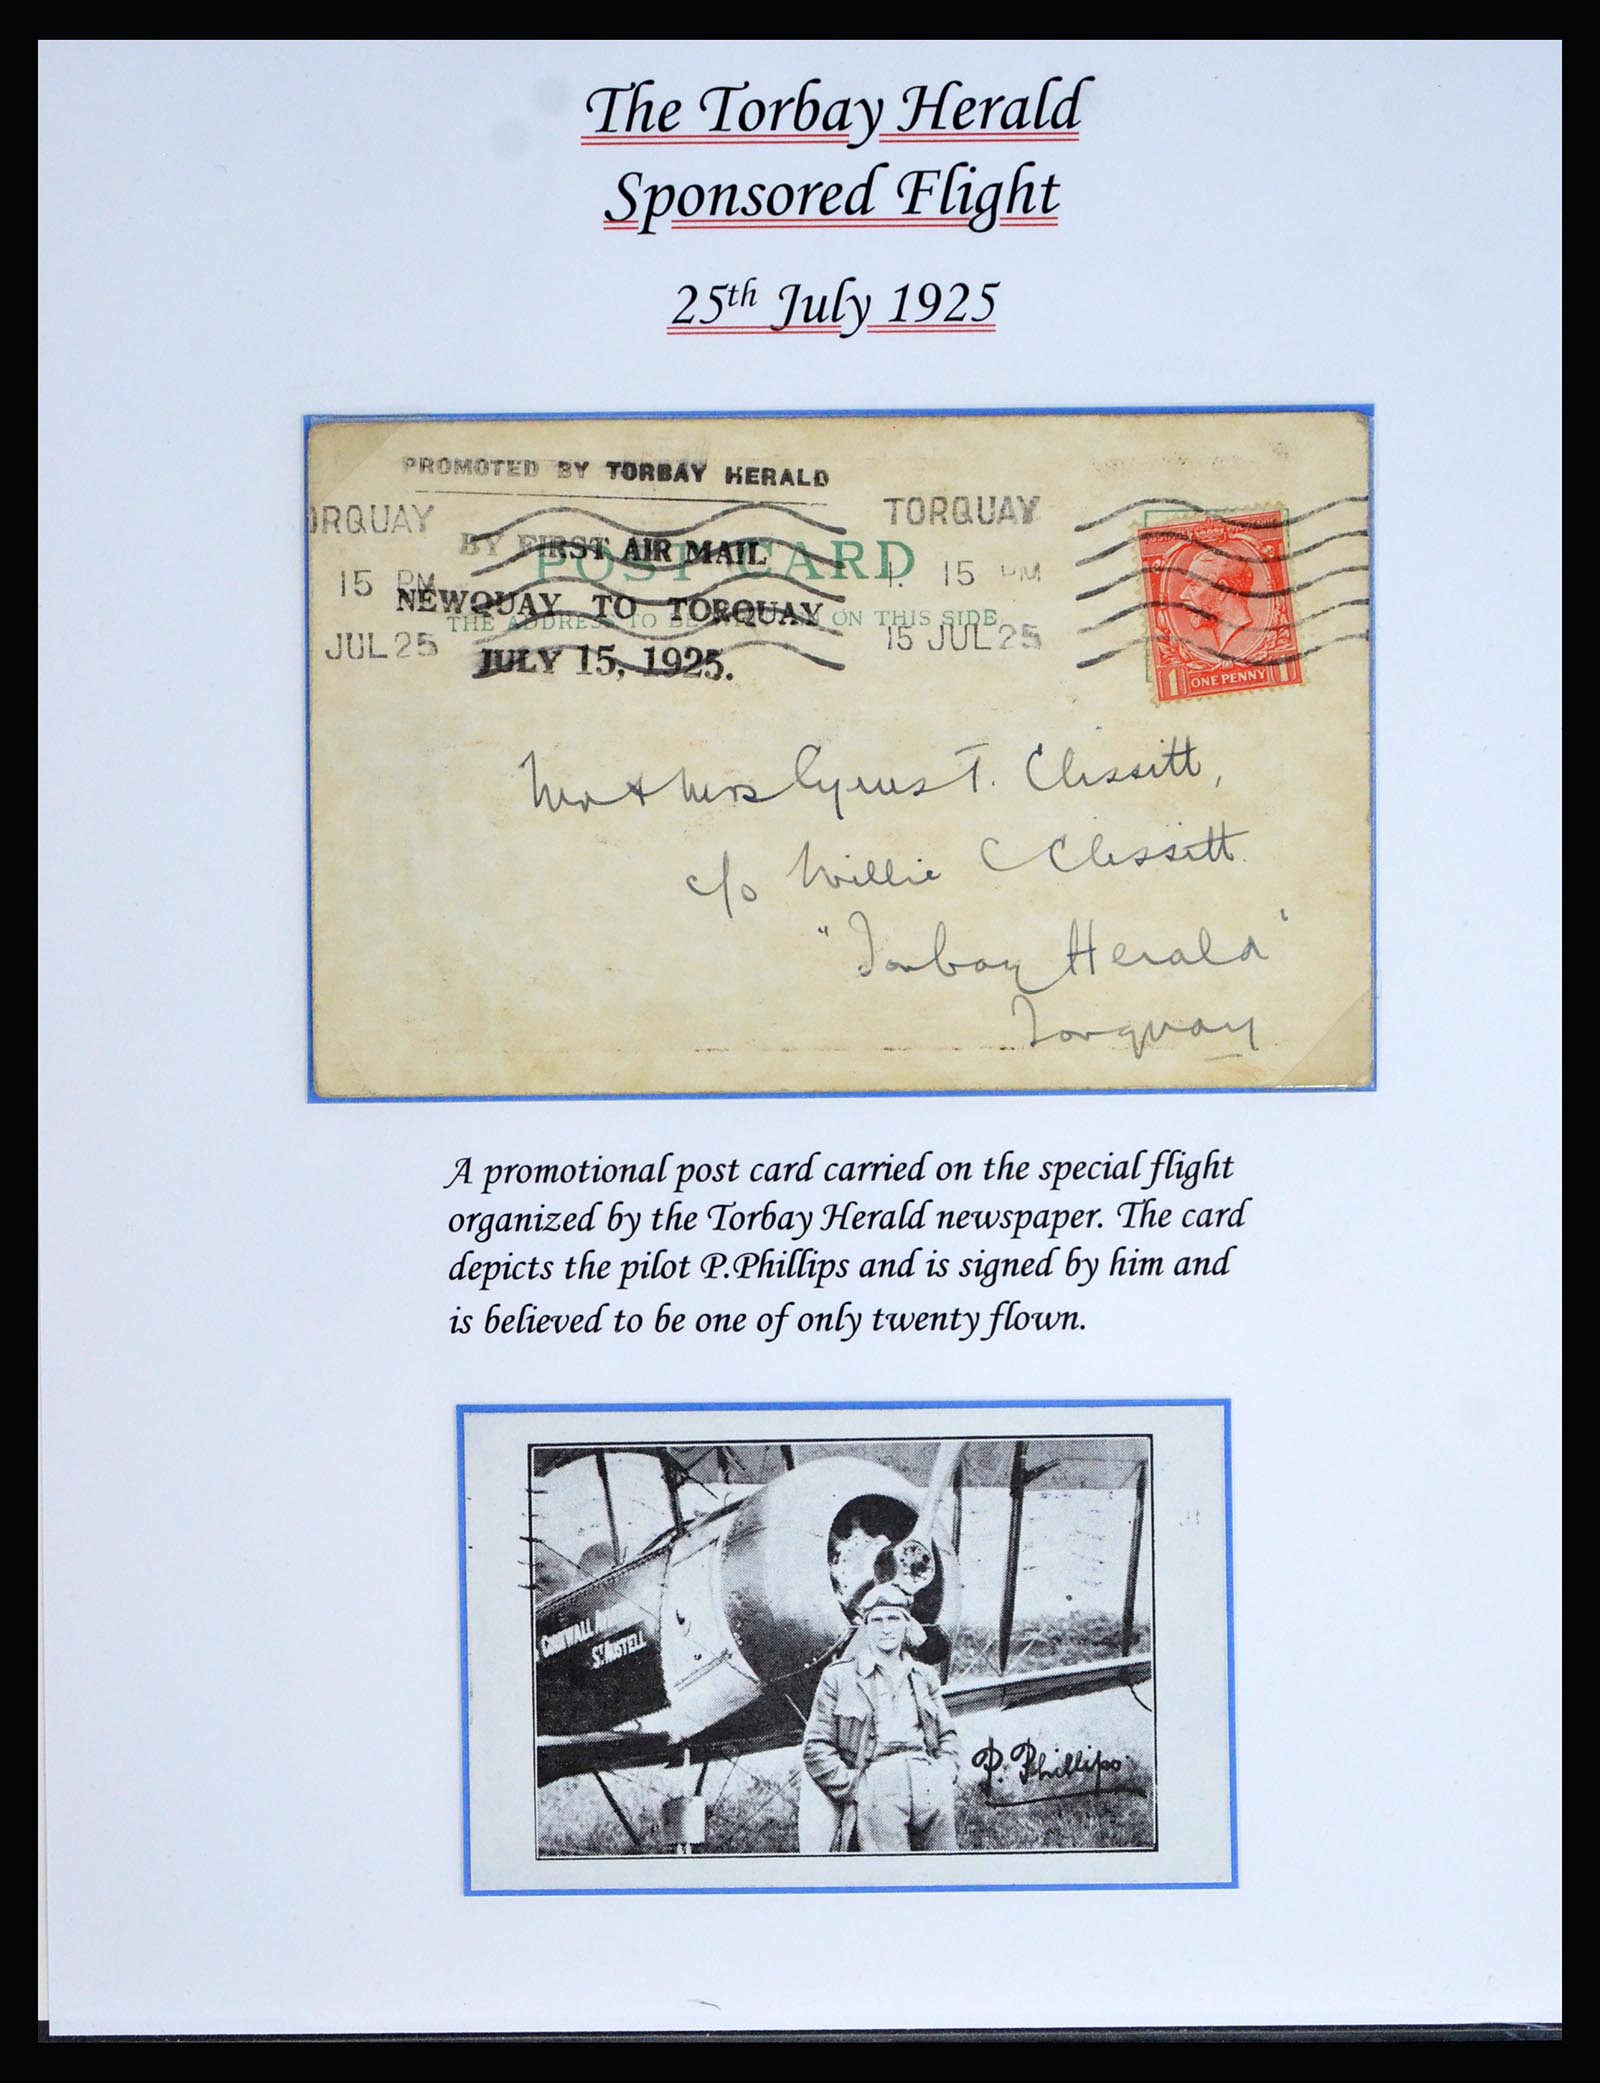 The Torbay Herald
Sponsored Flight
25th July 1925
PROMOTED BY TORBAY HERALD
ORQUAY
TORQUAY
BY FIRST AIR MAIL
POST CARD
15 PM
1. 15 PM
NEWQUAY TO TORQUAY
THE ADDRESS TO BE WRITTEN ON THIS SIDE
JUL 25
15 JUL 25
JULY 15, 1925.
1 ONE PENNY 1
Mr & Mrs Cyrus T. Clissitt,
c/o Willie C Clissitt
"Torbay Herald"
Torquay
A promotional post card carried on the special flight
organized by the Torbay Herald newspaper. The card
depicts the pilot P.Phillips and is signed by him and
is believed to be one of only twenty flown.
CORNWALL
ST AUSTELL
P. Phillips